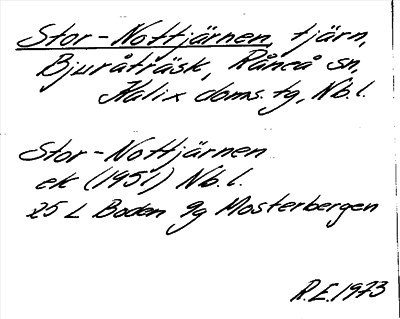 Stor-Nottjärnen, tjärn,
Bjuråträsk, Råneå sn,
Kalix doms. tg, Nb. l.
Stor-Nottjärnen
ek (1951) Nb. l.
25 L Boden 9g Mosterbergen
R.E. 1973